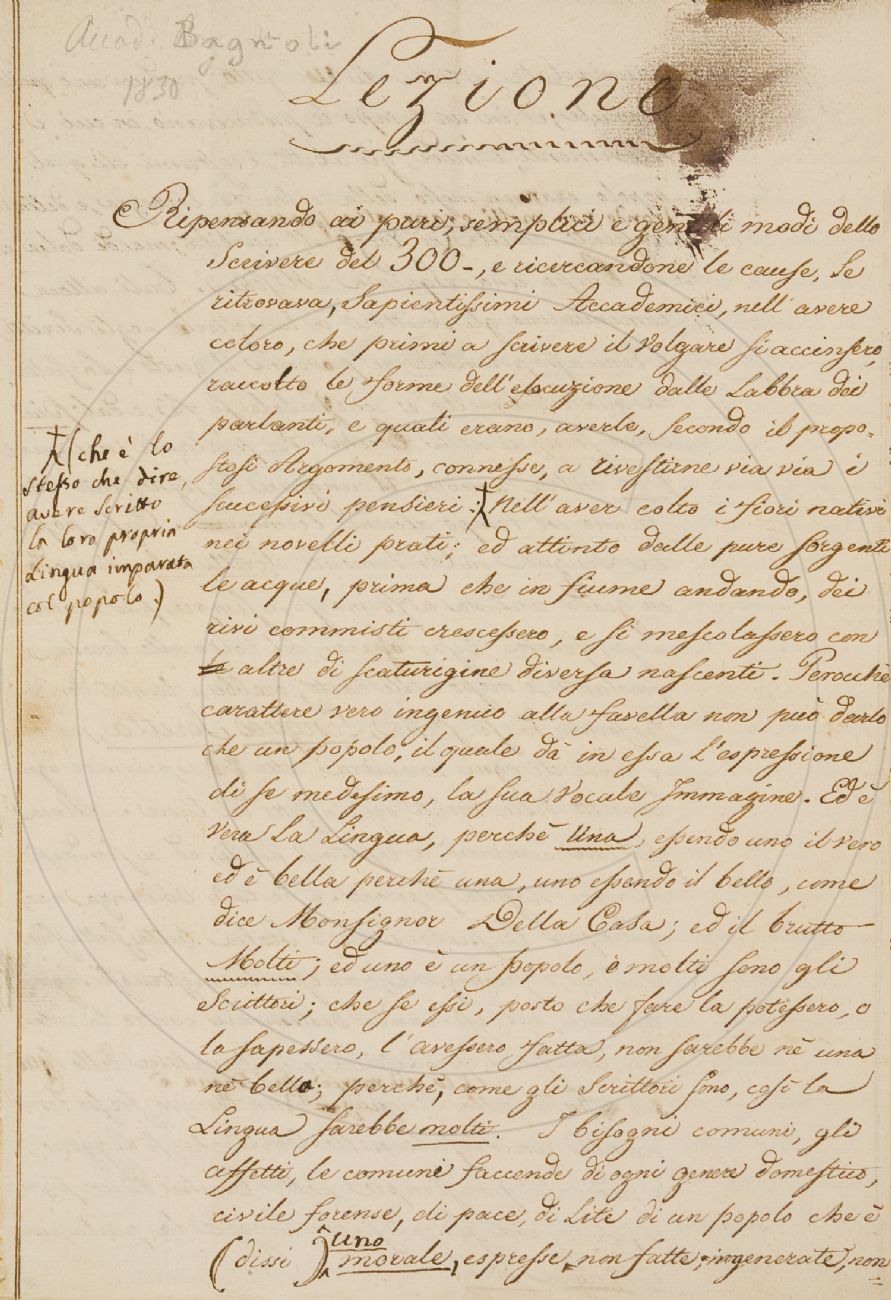 Accad. Bagnoli
1830
Lezione
Ripensando ai puri, semplici e gentili modi dello
Scrivere del 300-, e ricercandone le cause, Se
ritrovava, Sapientissimi Accademici, nell'avere
coloro, che primi a scrivere il Volgare si accinsero,
raccolto le forme dell'elocuzione dalle Labbra dei
parlanti, e quali erano, averle, secondo il propo-
stosi Argomento, connesse, a rivestirne via via i
successivi pensieri: Nell'aver colto i fiori nativi
nei novelli prati; ed attinto dalle pure sorgenti
le acque, prima che in fiume andando, dei
rivi commisti crescessero, e si mescolassero con
altre di scaturigine diversa nascenti. Perocchè
carattere vero ingenuo alla favella non può darlo
che un popolo, il quale dà in essa l'espressione
di se medesimo, la sua Vocale Immagine. Ed è
vera La Lingua, perchè Una, essendo uno il vero
ed è bella perchè una, uno essendo il bello, come
dice Monsignor Della Casa; ed il brutto
Molti; ed uno è un popolo, e molti sono gli
Scrittori; che se essi, posto che fare la potessero, o
la sapessero, l'avessero fatta, non sarebbe nè una
nè bella; perchè, come gli Scrittori sono, così la
Lingua sarebbe molti. I bisogni comuni, gli
affetti, le comuni faccende di ogni genere domestico,
civile forense, di pace, di Lite di un popolo che è
(dissi) uno
morale, espresse, non fatte, ingenerate, non
(che è lo
stesso che dire,
avere Scritto
la loro propria
Lingua imparata
col popolo.)